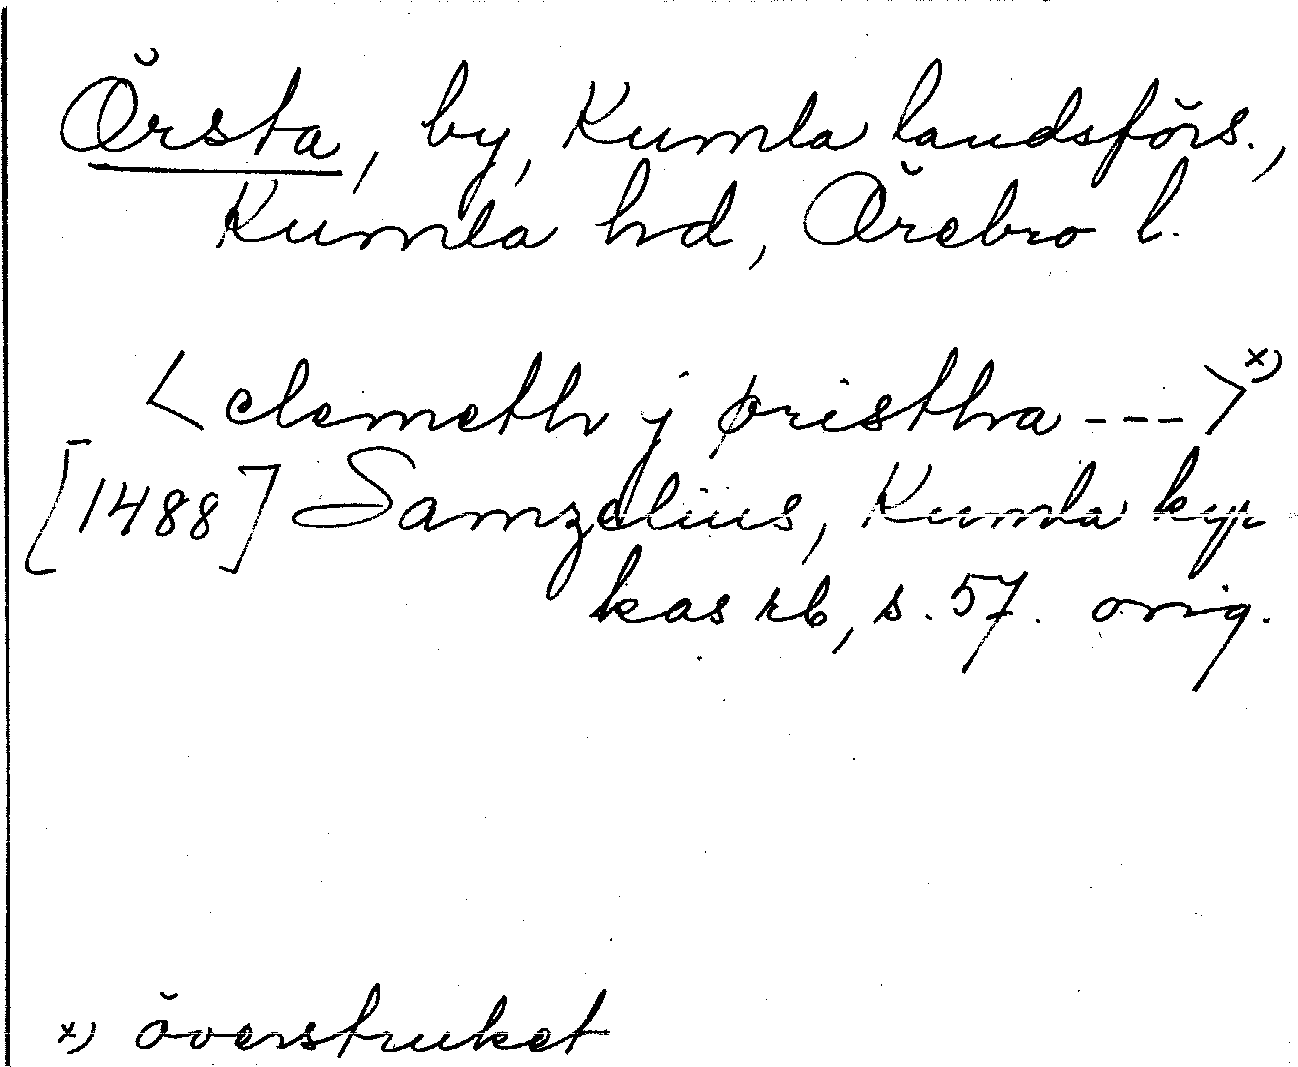 Örsta, by, Kumla landsförs.,
Kumla hd, Örebro l.
< clemeth j øristha --- > x)
[1488] Samzelius, Kumla kyr
kas rb, s. 57. orig.
x) överstruket